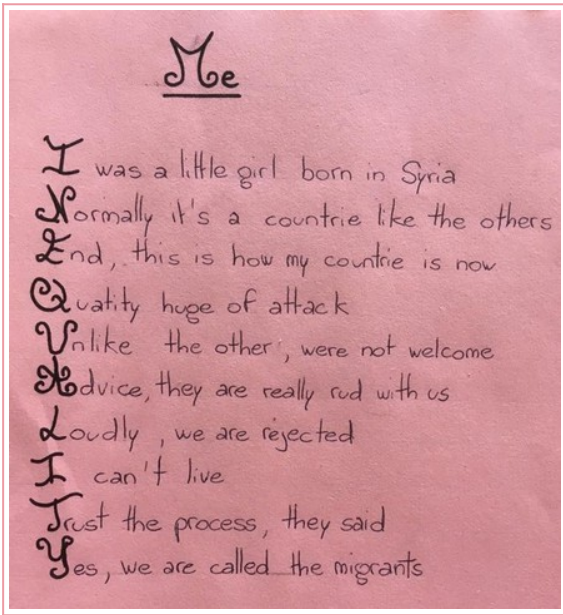 Me
I was a little girl born in Syria
Normally it's a countrie like the others
End, this is how my countrie is now
Quatity huge of attack
Unlike the other, were not welcome
Advice, they are really rud with us
Loudly, we are rejected
I can't live
Trust the process, they said
Yes, we are called the migrants